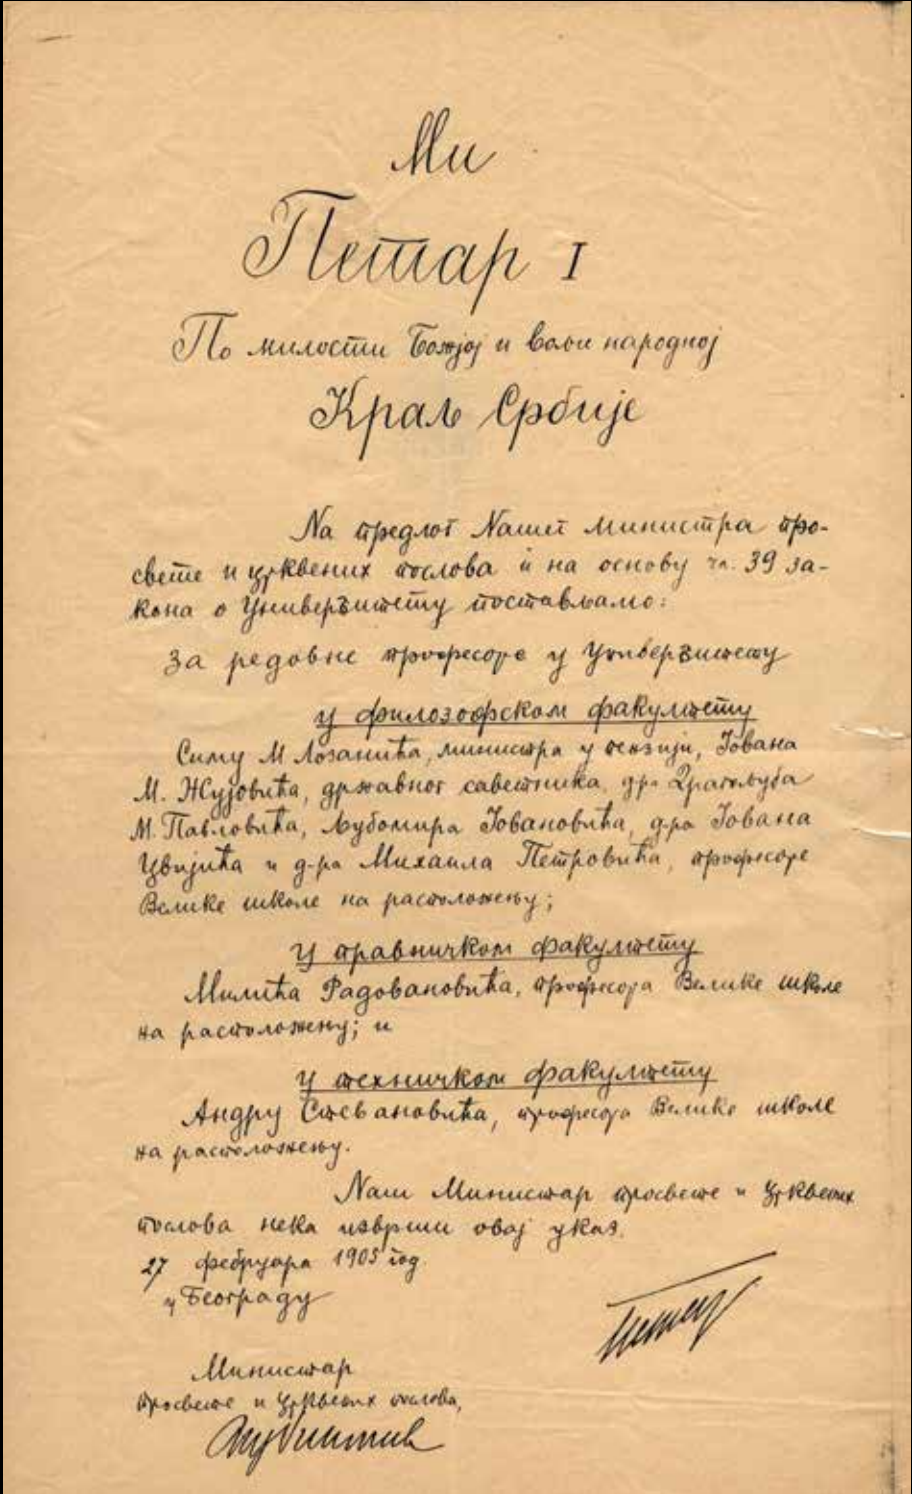 Ми
Петар I
По милости Божјој и вољи народној
Краљ Србије
На предлог Нашег министра про-
свете и црквених послова и на основу чл. 39 за-
кона о Универзитету постављамо:
за редовне професоре у Универзитету
у филозофском факултету
Симу М Лозанића, министра у пензији, Јована
М. Жујовића, државног саветника, д-ра Драгољуба
М. Павловића, Љубомира Јовановића, д-ра Јована
Цвијића и д-ра Михаила Петровића, професоре
Велике школе на расположењу;
у правничком факултету
Милића Радовановића, професора Велике школе
на расположењу; и
у техничком факултету
Андру Стевановића, професора Велике школе
на расположењу.
Наш Министар просвете и црквених
послова нека изврши овај указ.
27 фебруара 1905 год.
у Београду
Петар
Министар
просвете и црквених послова,